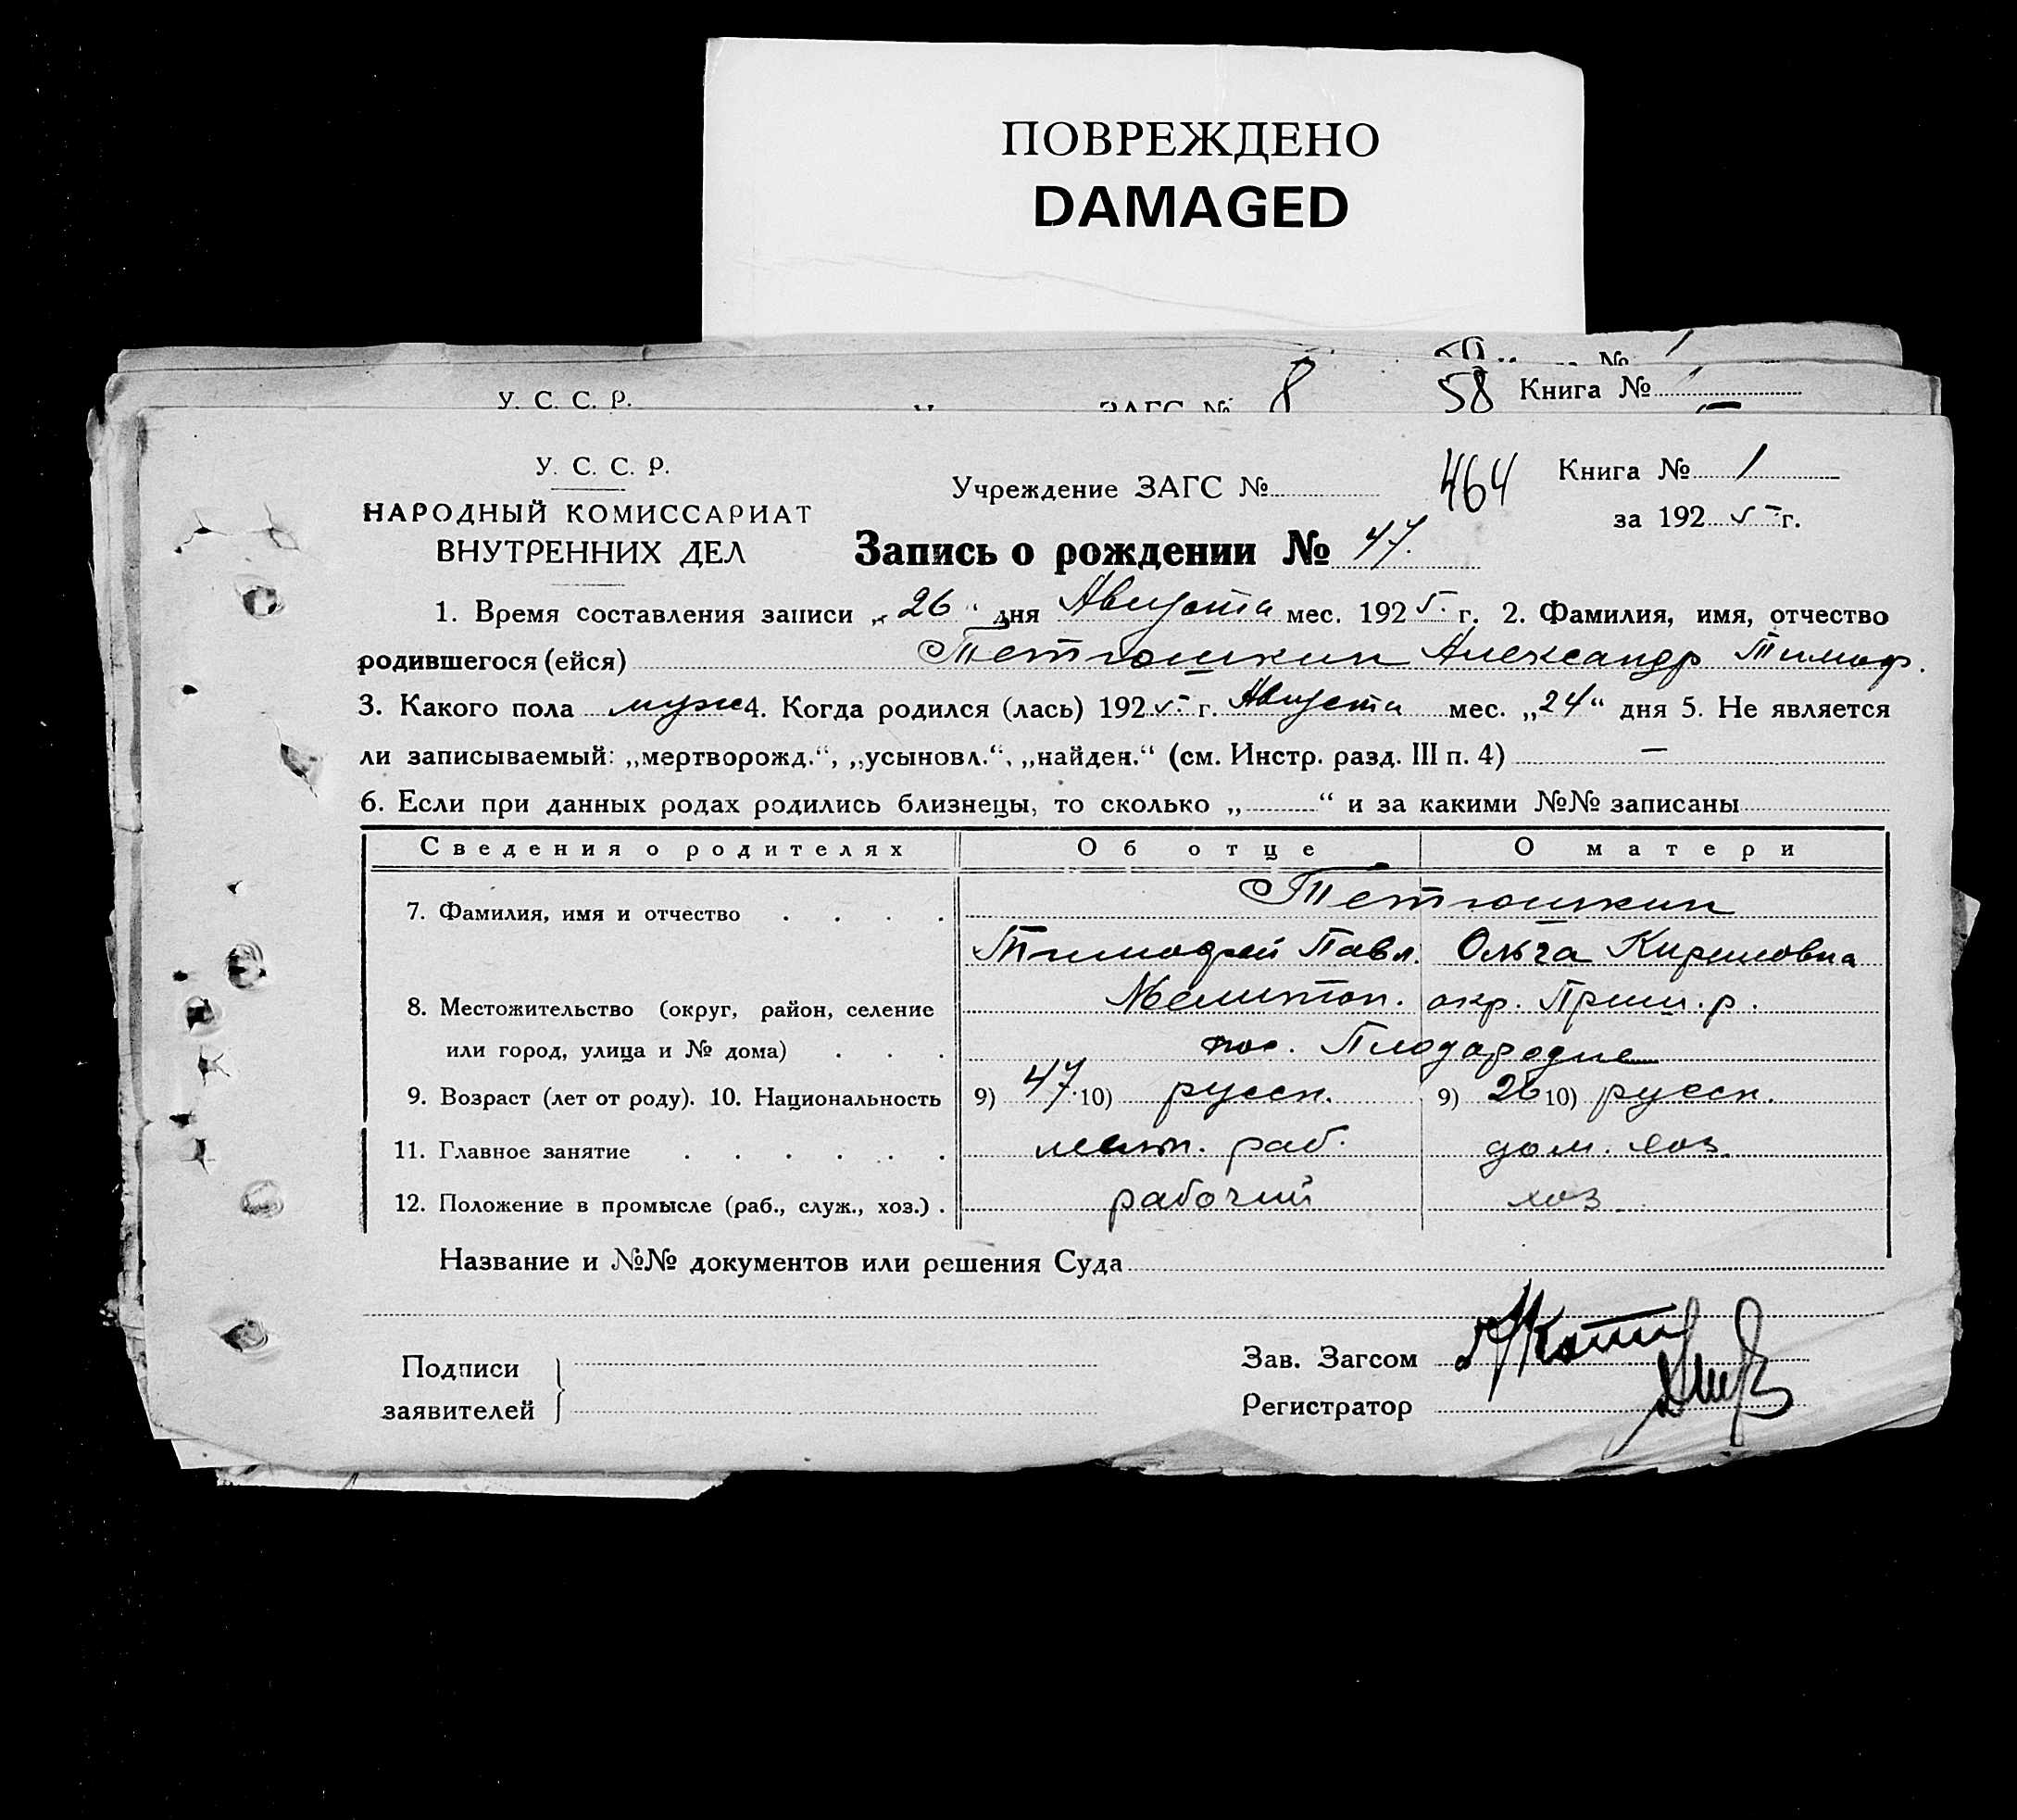 ПОВРЕЖДЕНО
DAMAGED
№ 1
У. С. С. Р. ЗАГС № 8 58 Книга № 1
У. С. С. Р.
НАРОДНЫЙ КОМИССАРИАТ
ВНУТРЕННИХ ДЕЛ
Учреждение ЗАГС № 464 Книга № 1
за 1925 г.
Запись о рождении № 47.
1. Время составления записи „26“ дня Августа мес. 1925. г. 2. Фамилия, имя, отчество
родившегося (ейся) Тетюшкин Александр Тимоф.
3. Какого пола муж 4. Когда родился (лась) 1925 г. Августа мес. „24“ дня 5. Не является
ли записываемый: „мертворожд.“, „усыновл.“, „найден.“ (см. Инстр. разд. III п. 4) —
6. Если при данных родах родились близнецы, то сколько „ “ и за какими №№ записаны
Сведения о родителях Об отце О матери
7. Фамилия, имя и отчество Тетюшкин
Тимофей Павл. Ольга Кириловна
8. Местожительство (округ, район, селение Мелитоп. окр. Приш. р.
или город, улица и № дома) пос. Плодородие
9. Возраст (лет от роду). 10. Национальность 9) 47. 10) русск. 9) 26 10) русск.
11. Главное занятие раб. дом. хоз.
12. Положение в промысле (раб., служ., хоз.) рабочий хоз
Название и №№ документов или решения Суда
Подписи
заявителей
Зав. Загсом
Регистратор